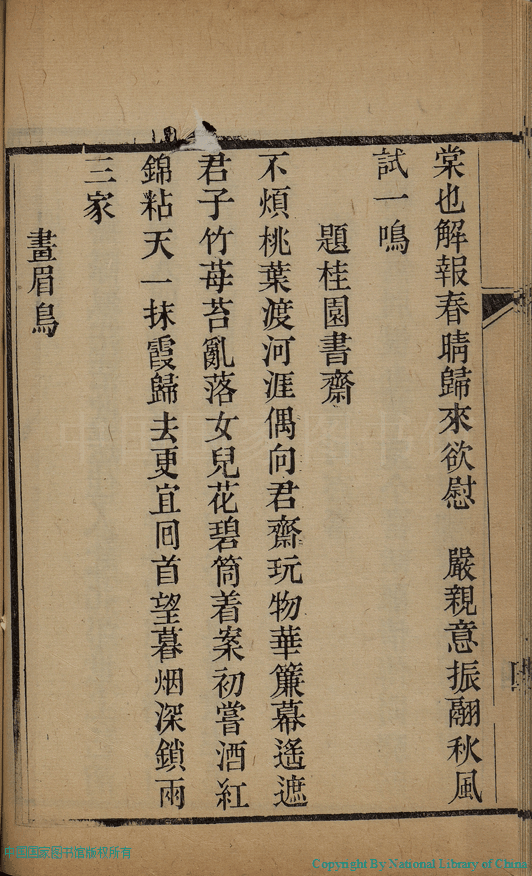 棠也解報春晴歸來欲慰　嚴親意振翮秋風
試一鳴
題桂園書齋
不煩桃葉渡河涯偶向君齋玩物華簾幕遙遮
君子竹苺苔亂落女兒花碧筒着案初嘗酒紅
錦粘天一抹霞歸去更宜回首望暮烟深鎖兩
三家
畫眉鳥
中国国家图书馆版权所有
Copyright By National Library of China